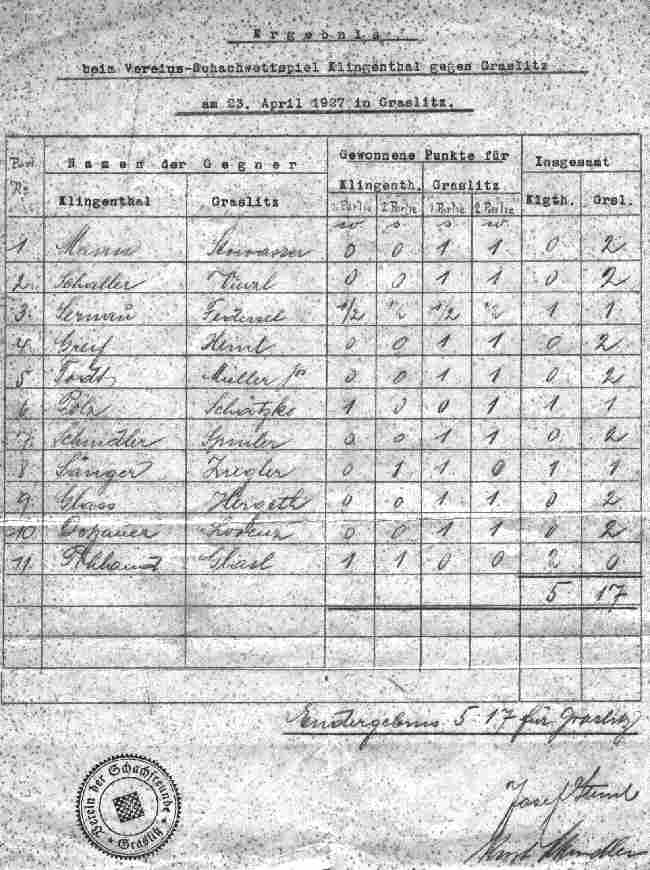 Ergebnis
beim Vereins-Schachwettspiel Klingenthal gegen Graslitz
am 23. April 1927 in Graslitz.
Namen der Gegner Gewonnene Punkte für Insgesamt
Klingenth. Graslitz
Klingenthal Graslitz 1 Partie 2 Partie 1 Partie 2 Partie Klgth. Grsl.
w s s w
1. Mann 0 0 1 1 0 2
2. Schaller 0 0 1 1 0 2
3. 1/2 1/2 1/2 1/2 1 1
4. Greif Heml 0 0 1 1 0 2
5 Todt Müller jr 0 0 1 1 0 2
6 Pölz Schätzke 1 0 0 1 1 1
7. Schindler 0 0 1 1 0 2
8 Sänger Ziegler 0 1 1 0 1 1
9 Glass Hergeth 0 0 1 1 0 2
10 0 0 1 1 0 2
11. Glasl 1 1 0 0 2 0
5 17
Endergebnis 5:17 für Graslitz
Verein der Schachfreunde
Graslitz
Josef